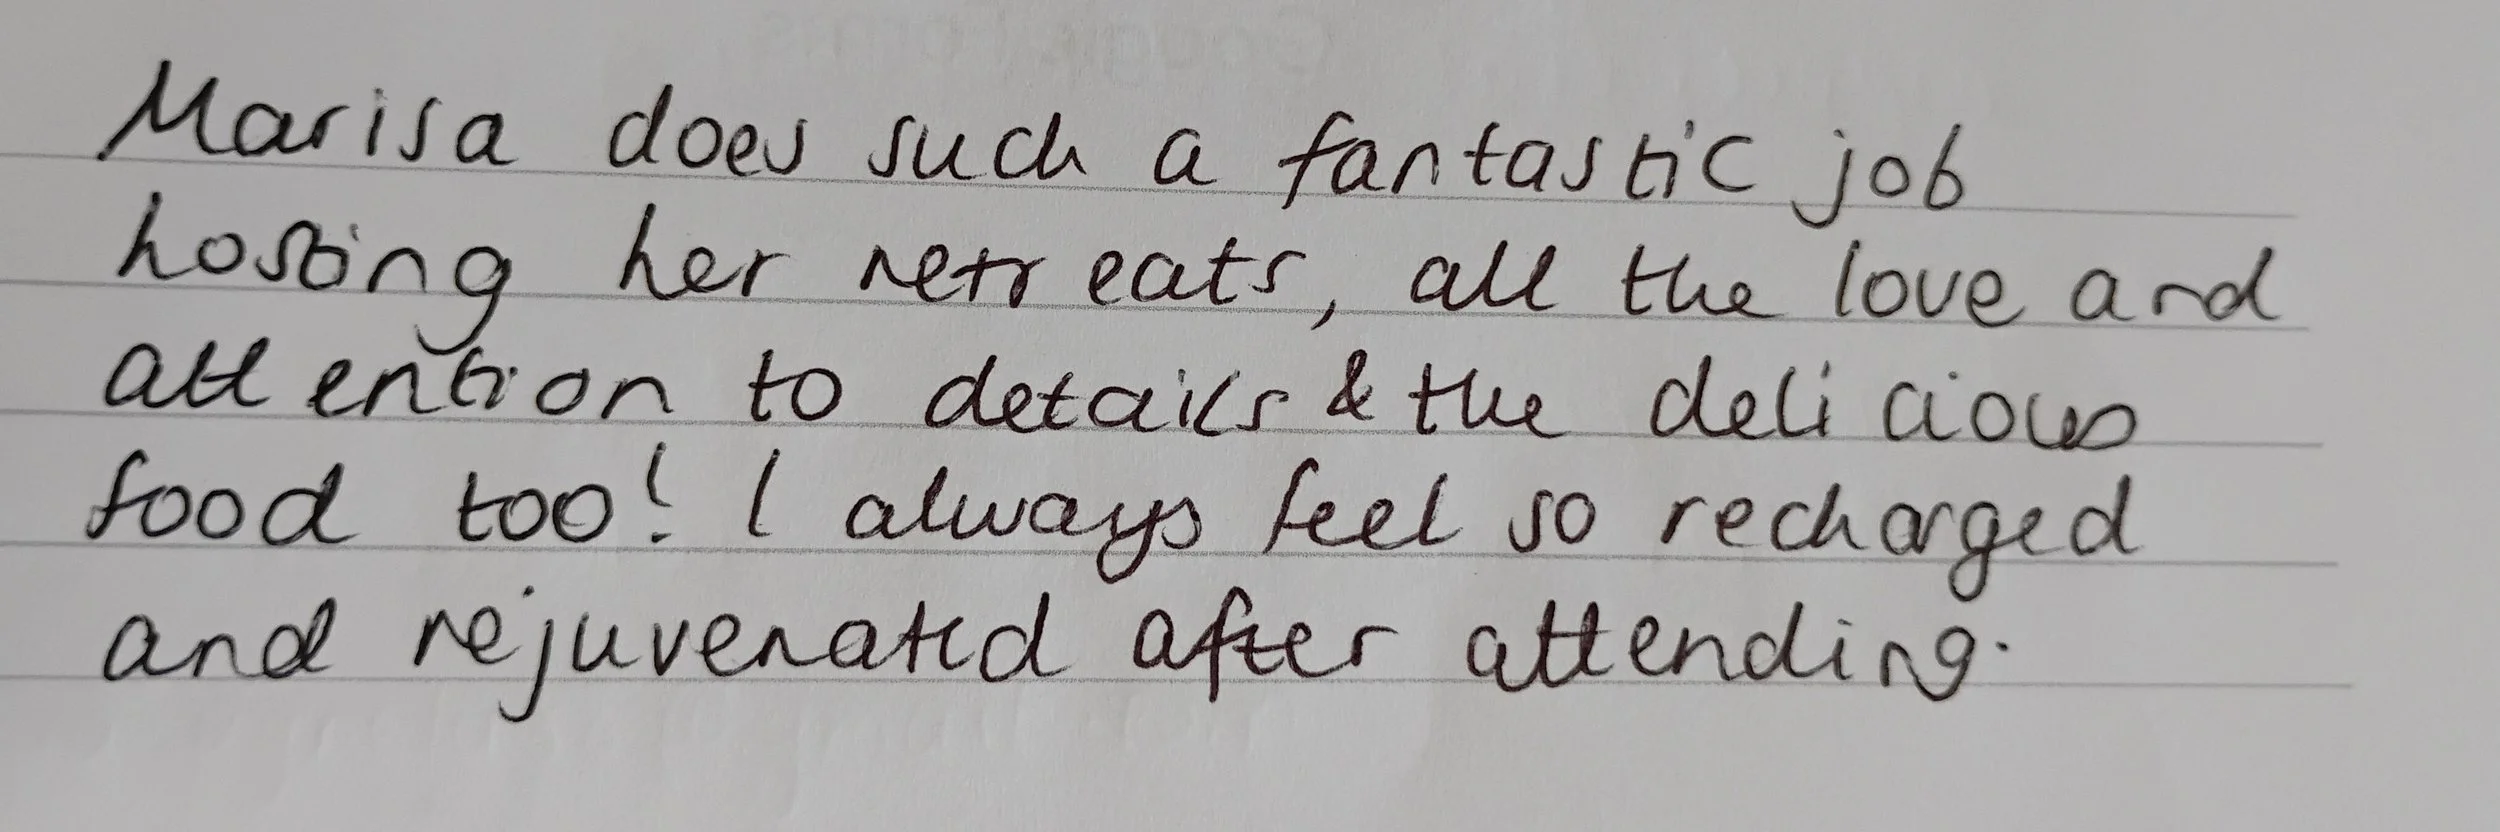 Marisa does such a fantastic job
hosting her retreats, all the love and
attention to details & the delicious
food too! I always feel so recharged
and rejuvenated after attending.